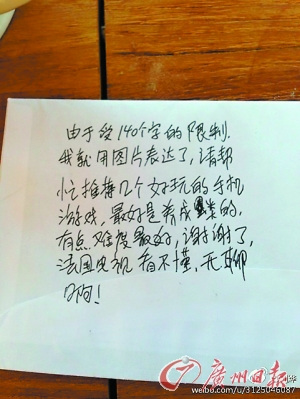 由于受140个字的限制.
我就用图片表达了,请帮
忙推荐几个好玩的手机
游戏,最好是养成类的,
有点难度最好,谢谢了,
法国电视看不懂,无聊
啊!
广州日报
weibo.com/u/3125046087